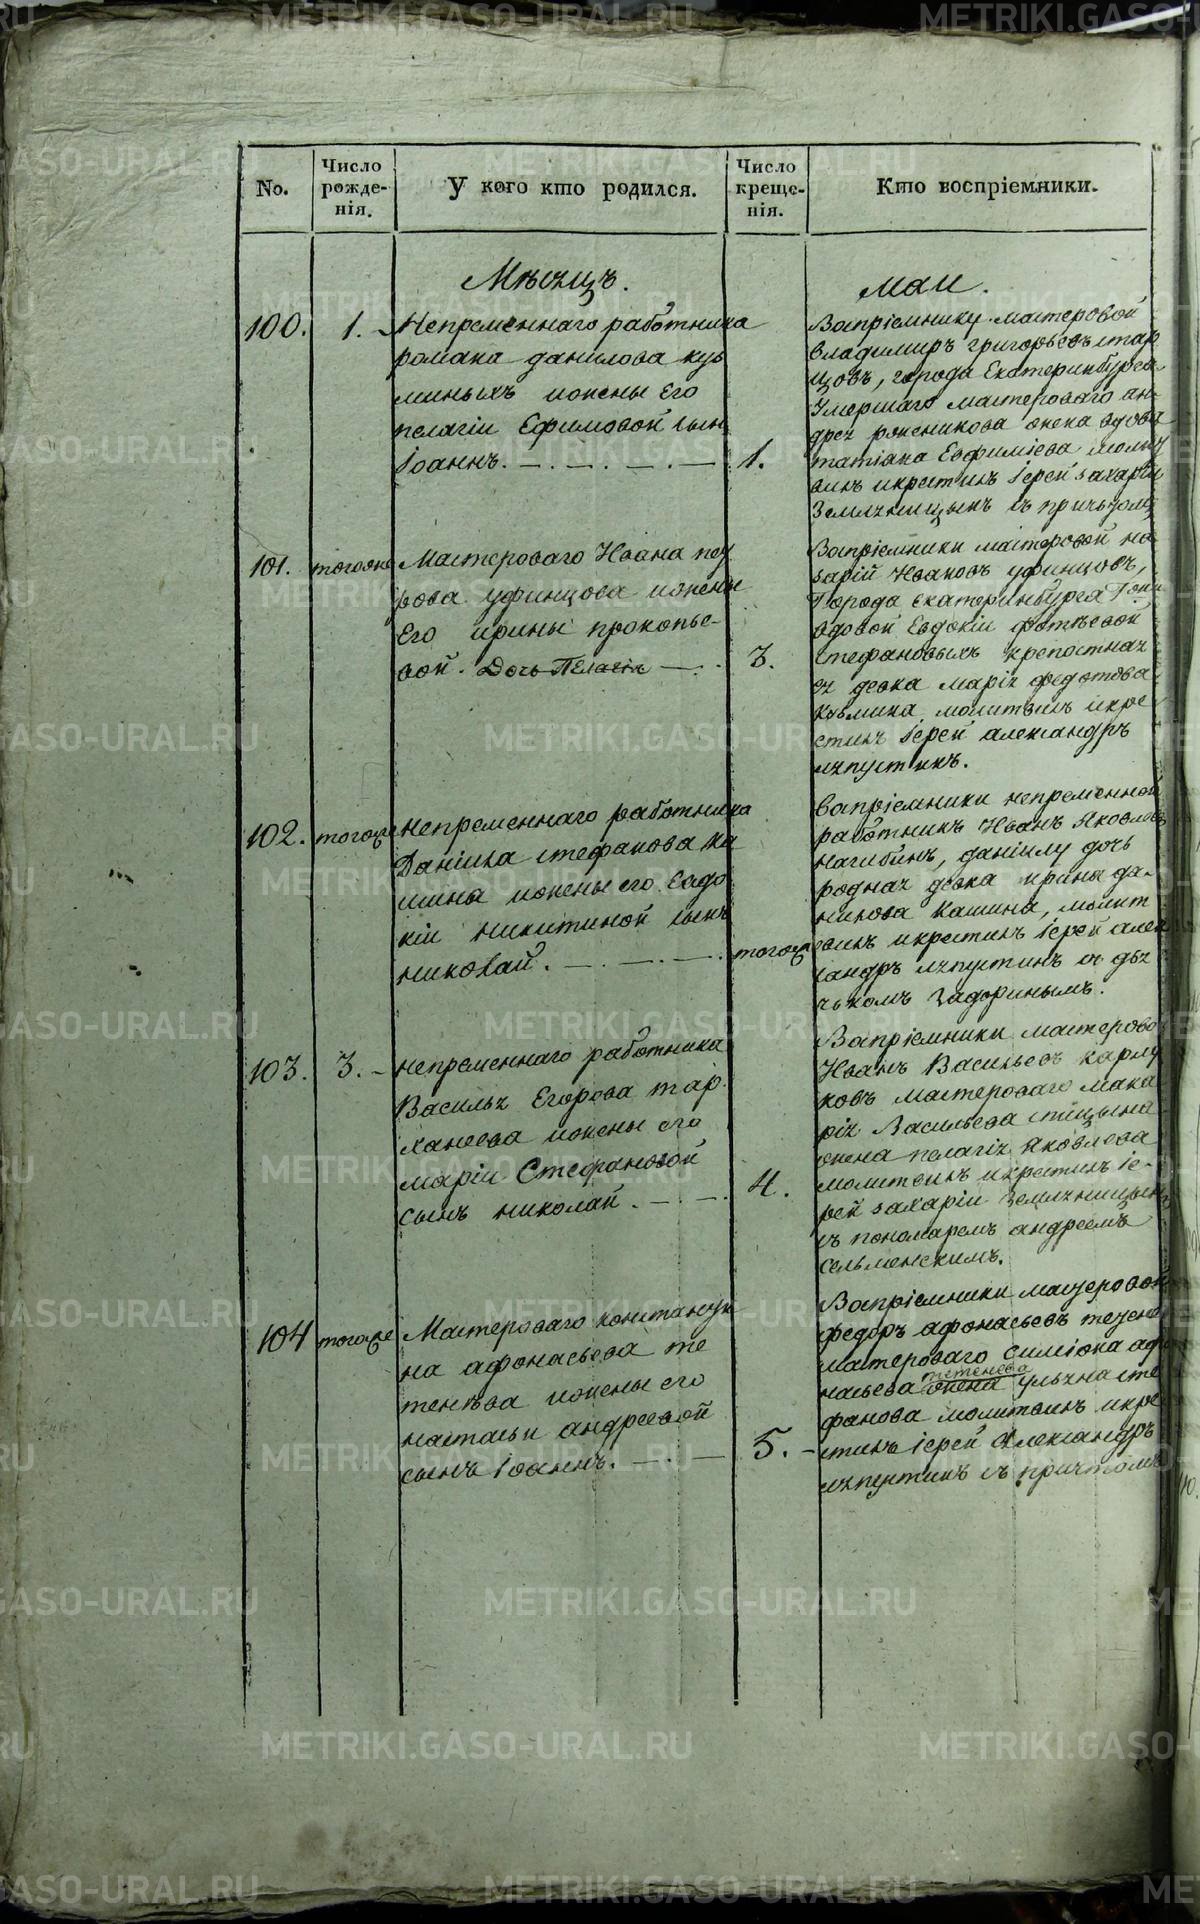 No.
Число рожде- нія.
У кого кто родился.
Число креще- нія.
Кто воспріемники.
Мѣсяцъ.
маи.
100.
1.
Непременнаго работника
романа данилова кузь
миныхъ ижены его
пелагіи Ефимовой сынъ
Іоаннъ.
1.
Вопріемники мастеровой
владимиръ григорьевъ стар
цовъ, города Екатеринбурга
Умершаго мастероваго ан-
дрея рожникова жена вдова
татіана Евфиміева молит
вилъ икрестилъ Іерей захарій
Земляницынъ съ причьтомъ
101.
тогоже
Мастероваго Ивана пет
рова уфинцова ижены
Его ирины прокопье-
вой. Дочь Пелагія
3.
Вопріемники мастеровой на
зарій Ивановъ уфинцовъ,
Города екатеринбурга
вдовой Евдокіи фотѣевой
стефановыхъ крепостная
ея девка марія федотова
кузьмина, молитвилъ икре
стилъ Іерей александръ
ляпустинъ.
102.
тогоже
непременнаго работника
Даніила стефанова ка
шина ижены его Евдо
кіи никитиной сынъ
николай.
тогоже
Вопріемники непременной
работникъ Иванъ Яковлевъ
нагибинъ, даніилу дочь
родная девка ирина да-
нилова Кашина, молит
вилъ икрестилъ Іерей алек
сандръ ляпустинъ съ дья
чькомъ Задоринымъ.
103.
3.
непременнаго работника
Василья Егорова тар
ханеева ижены его
маріи Стефановой
сынъ николай.
4.
Вопріемники мастерово
Иванъ Васильевъ карму
ковъ мастероваго мака
рія Васильева спицына
жена пелагія Яковлева
молитвилъ икрестилъ іе-
рей захарій Земляницынъ
съ пономаремъ андреемъ
сельменскимъ.
104
тогоже
Мастероваго константи
на афонасьева те
тенѣва ижены его
настасьи андреевой
сынъ Іоаннъ.
5.
Вопріемники мастеровой
федоръ афонасьевъ тетене
мастероваго симіона афо
тетенева
насьева жена ульяна сте
фанова молитвилъ икре
стилъ іерей Александръ
ляпустинъ съ причтомъ
METRIKI.GASO-URAL.RU